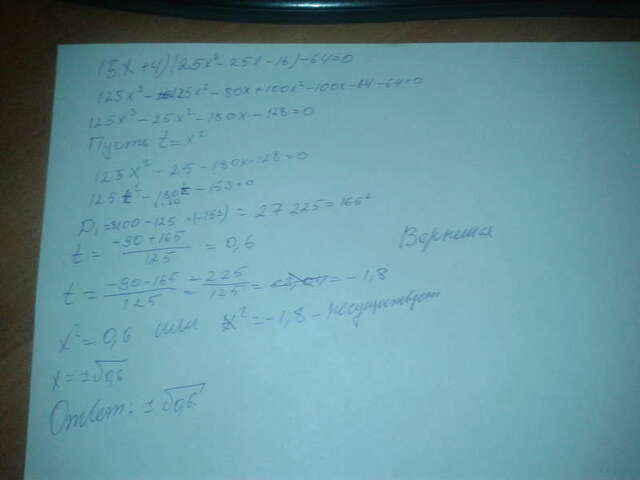 (5x+4)(25x²-25x-16)-64=0
125x³-125x²-80x+100x²-100x-64-64=0
125x³-25x²-180x-128=0
Пусть t=x²
125x²-25-180x-128=0
125t²-180t-153=0
D₁=8100-125·(-153)=27225=165²
t=\frac{-90+165}{125}=0,6
t=\frac{-90-165}{125}=\frac{-225}{125}=-1,8
Вернемся
x²=0,6 или x²=-1,8-несуществует
x=±√0,6
Ответ: ±√0,6